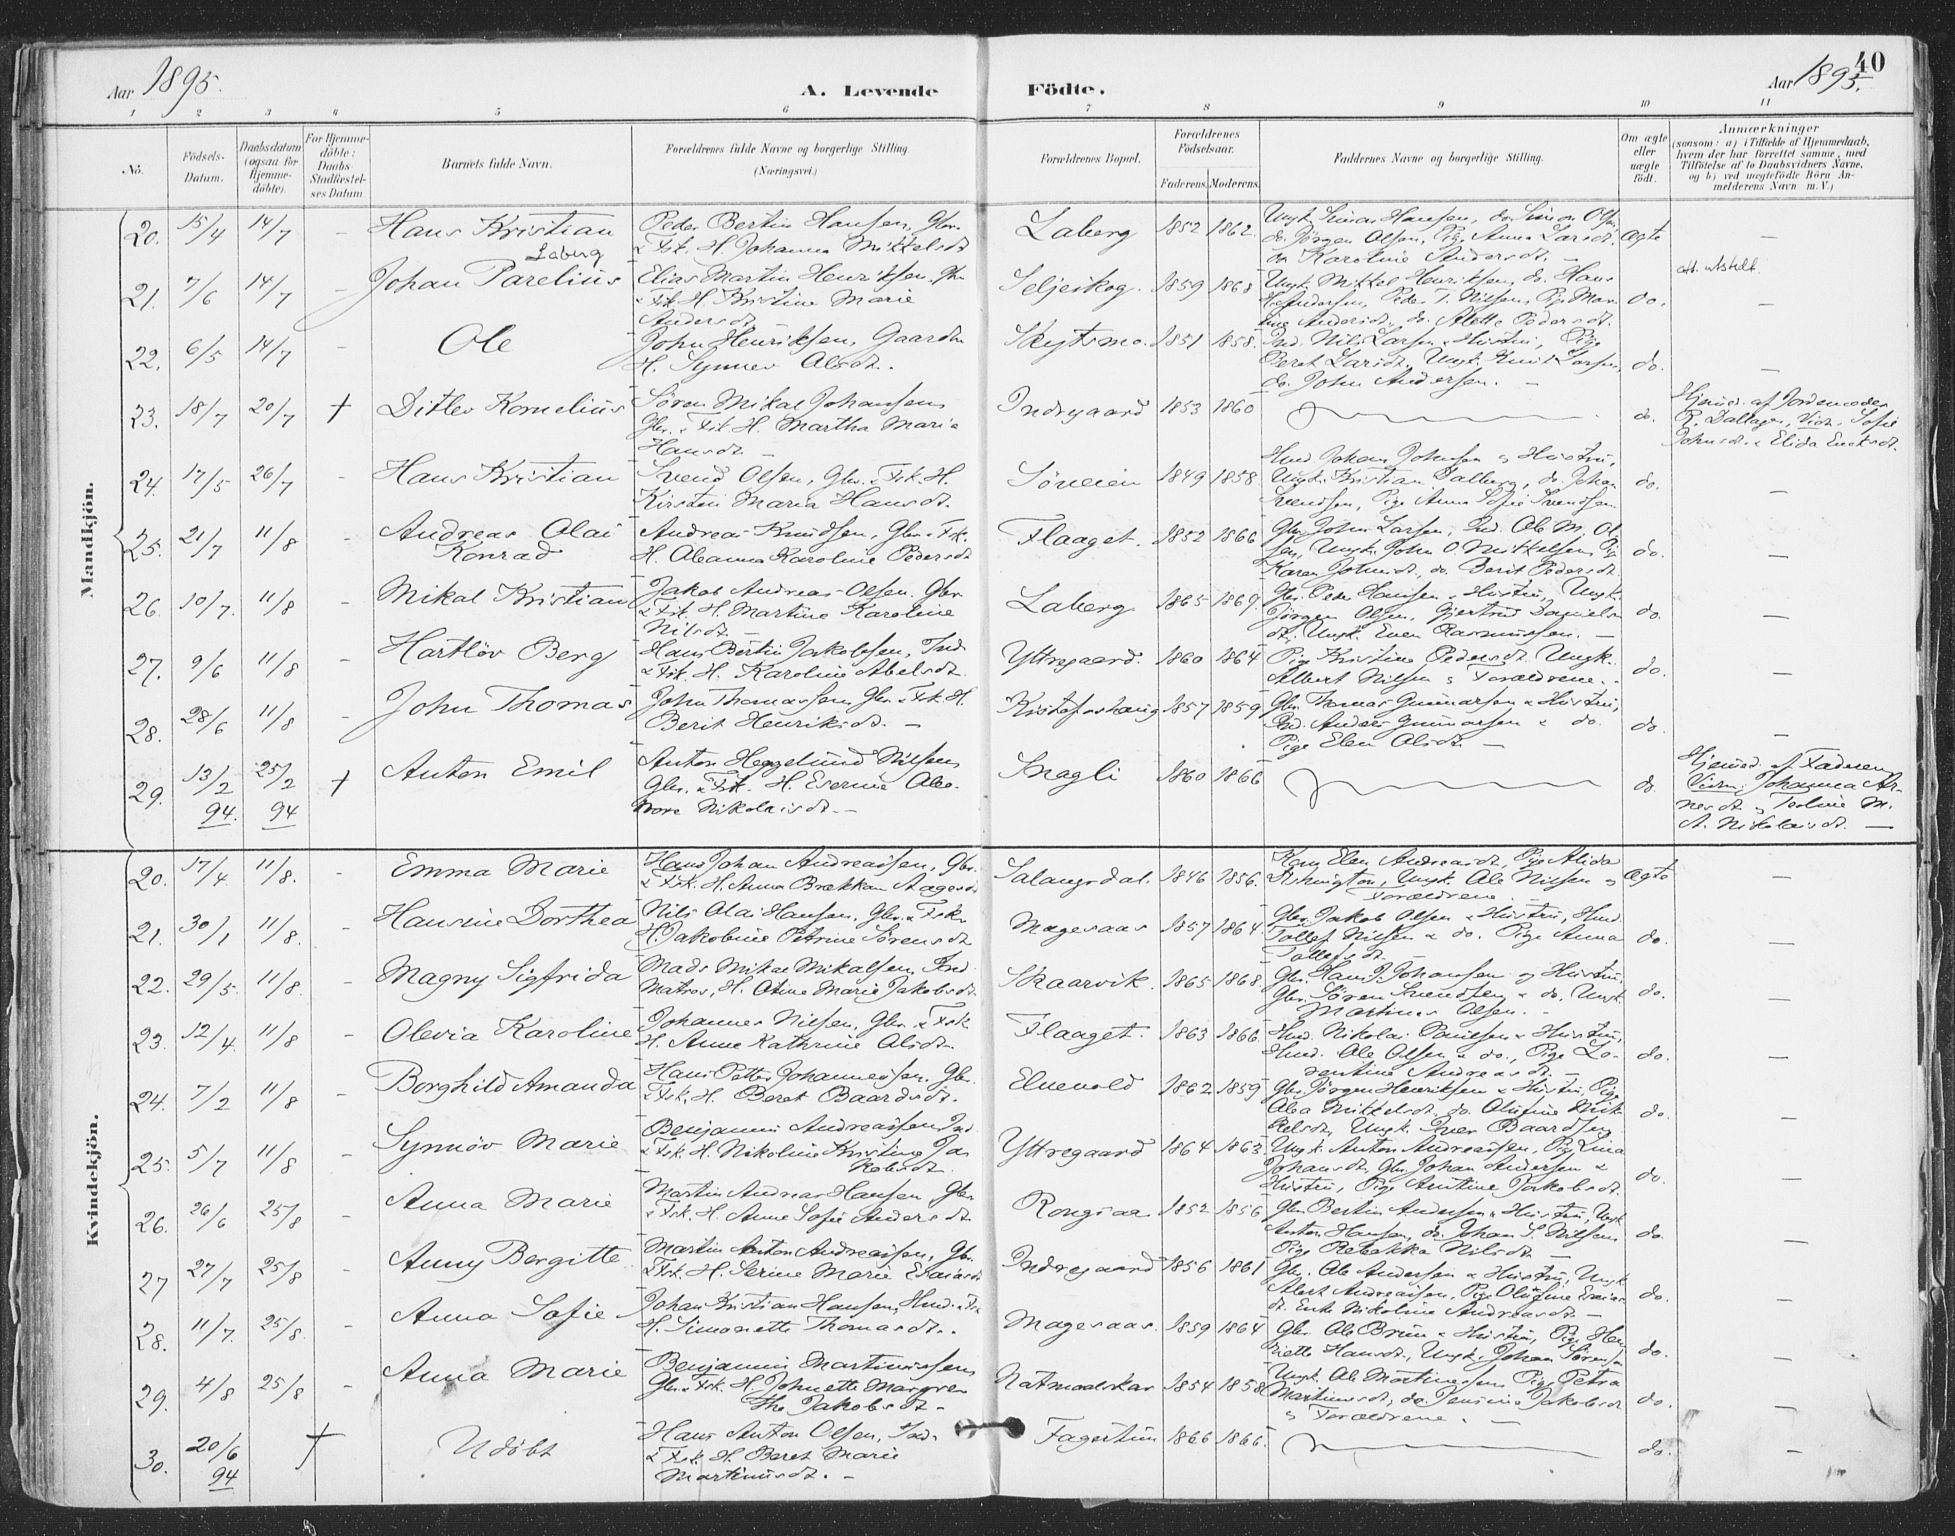 Aar 1895.
A. Levende Fødte.
Aar 1895.
40
1 2 3 4 5 6 7 8 9 10 11
No.
Födsels-Datum.
Daabsdatum (ogsaa for Hjemme-döbte).
For Hjemme-döbte: Daabs Stadfæstel-ses Datum
Barnets fulde Navn.
Forældrenes fulde Navne og borgerlige Stilling. (Næringsvei.)
Forældrenes Bopæl.
Forældrenes Födselsaar.
Faderens. Moderens.
Faddernes Navne og borgerlige Stilling.
Om ægte eller uægte födt.
Anmærkninger (saasom: a) i Tilfælde af Hjemmedaab, hvem der har forrettet samme, med Tilföielse af to Daabsvidners Navne, og b) ved uægtefödte Börn An-melderens Navn m. V.)
Mandkjön.
20. 15/4 14/7 - Hans Kristian Laberg
Peder Bertin Hansen, Gbr. & Fsk. H. Johanna Mikkelsdt.
Laberg 1852 1862.
Ungk. Hansen, do. Simon Olsen, do. Jörgen Olsen, Pige Anna Larsdt. do Karoline Andersdt. -
Ægte -
21. 7/6 14/7 - Johan Parelius
Elias Martin Henriksen, Gbr. & Fsk. H. Kristine Marie Andersdt.
Seljeskog. 1859 1868
Ungk. Mikkel Henriksen, do. Hans H. Andersen, Peder T. Nilsen, Pige Marine Andersdt. do. Alette Pedersdt.
Do. att. utstelt. -
22. 6/5 14/7 - Ole
John Henriksen, Gaardbr. H. Synnev Olsdt.
1851 1858.
Ind. Nils Larsen & Hustru, Pige Beret Larsdt. Ungk. Knut Larsen, do. John Andersen. -
do. -
23. 18/7 20/7 + Ditlev Kornelius
Sören Mikal Johansen Gbr. & Fsk. H. Martha Maria Hansdt.
Indregaard 1853 1860
do.
Hjemd. af Jordemoder R. Dallager, Vidn. Sofie Johnsdt. & Elida Enoksdt.
24. 17/5 26/7 - Hans Kristian
Svend Olsen, Gbr. & Fsk. H. Kirsten Maria Hansdt.
Söveien 1849 1858
Hmd Johan Johnsen og Hustru, Ungk. Kristian Dalberg, do. Johan Svendsen, Pige Anna Sofie Svendsen
do. -
25. 21/7 11/8 - Andreas Olai Konrad
Andreas Knudsen, Gbr. & Fsk. H. Oleanna Karoline Pedersdt
Flaaget. 1852 1866
Gbr. John Larsen, Ind. Ole M. Olsen, Ungk. John O. Mikkelsen, Pige Karen Johnsdt. do. Berit Pedersdt.
do. -
26. 10/7. 11/8 - Mikal Kristian
Jakob Andreas Olsen. Gbr & Fsk. H. Martine Karoline Nilsdt. -
Laberg 1865 1869.
Gbr. Peder Hansen & Hustru, Ungk. Jörgen Olsen, Gjertrud Danielsdt, Ungk. Even Rasmussen. -
do. -
27. 9/6 11/8 - Hartløv Berg
Hans Bertin Jakobsen, Ind. & Fsk. H. Karoline Abelsdt.
Yttregaard. 1860 1864
Pige Kristine Pedersdt. Ungk. Albert Nilsen & Forældrene.
do. -
28. 28/6 11/8 - John Thomas
John Thomassen Gbr. & Fsk. H. Berit Henriksdt. -
Kristofershaug 1857 1859
Gbr. Thomas Gunnarsen & Hustru, Ind. Anders Gunnarsen & do. Pige Elen Olsdt. -
do. -
29. 13/2 94. 25/2 94 + Anton Emil
Anton Heggelund Nilsen Gbr. & Fsk. H. Eserine Aleonore Nikolaisdt. -
Snagli 1860 1866
do.
Hjemd. af Faderen Vidn. Johanna Arnesdt. & Teoline M. A. Nikolaisdt. -
Kvindekjön.
20. 17/4 11/8. - Emma Marie
Hans Johan Andreassen, Gbr. & Fsk. H. Anna Brækkan Aagesdt
Salangsdal. 1846 1856.
Elen Andreasdt, Pige Alida, Ungk. Ole Nilsen & Forældrene. -
Ægte -
21. 30/1 11/8. - Hansine Dorthea
Nils Olai Hansen, Gbr. & Fsk. H. Jakobine Petrine Sörensdt
Magesaas 1857 1864
Gbr. Jakob Olsen & Hustru, Hmd. Tollef Nilsen & do. Pige Anna Tollefsdt. -
do. -
22. 29/5. 11/8. - Magny Sigfrida
Mads Mikal Mikalsen, Ind. Matros, H. Oline Marie Jakobsdt.
Skaarvik. 1865 1868
Gbr. Hans J. Johansen og Hustru, Gbr. Sören Svendsen & do. Ungk. Martinus Olsen. -
do. -
23. 12/4. 11/8 - Olevia Karoline
Johannes Nilsen, Gbr. & Fsk H. Anne Kathrine Olsdt.
Flaaget. 1863 1866.
Hmd. Nikolai Paulsen & Hustru, Hmd. Ole Olsen & do., Pige Lorentine Andreasdt. -
do. -
24. 7/2 11/8 - Borghild Amanda
Hans Petter Johannessen. Gbr. & Fsk. H. Beret Baardsdt.
Elvevold 1862 1859
Gbr. Jörgen Henriksen & Hustru, Pige Olea Mikkelsdt. do. Olufine Mikkelsdt, Ungk. Iver Baardsen
do. -
25. 5/7 11/8 - Synnöv Marie
Benjamin Andreassen Ind. & Fsk. H. Nikoline Kristine Jakobsdt.
Yttregaard 1864 1863.
Ungk. Anton Andreassen, Pige Lina Johansdt, Gbr. Johan Andersen & Hustru, Pige Antine Jakobsdt.
do. -
26. 26/6 25/8 - Anna Marie
Martin Andreas Hansen Gbr. & Fsk. H. Anne Sofie Andersdt
Rongsaa 1852 1856
Gbr. Bertin Andersen & Hustru, Ungk Anton Hansen, do. Johan S. Nilsen, Pige Rebekka Nilsdt -
do. -
27 27/7 25/8 - Anny Bergitte
Martin Anton Andreassen, Gbr. & Fsk. H. Serine Marie Esaiasdt
Indregaard 1856 1861
Gbr. Ole Andersen & Hustru, Ungk Albert Andreassen, Pige Olufine Esaiasdt. Enke Nikoline Andreasdt -
do. -
28. 11/7. 25/8. - Anna Sofie
Johan Kristian Hansen, Hmd. & Fsk H. Simonette Thomasdt.
Magesaas. 1859 1864
Gbr. Ole Bruun & Hustru, Pige Henriette Hansdt., Ungk. Johan Sörensen
do. -
29. 4/8 25/8 - Anna Marie
Benjamin Martinussen Gbr. & Fsk. H. Johnette Margrethe Jakobsdt -
Natmaalskar 1854 1858
Ungk. Ole Martinussen, Pige Petra Martinusdt, do. Jensine Jakobsdt & Forældrene. -
do. -
30. 20/6 94 + Udöbt
Hans Anton Olsen, Ind. & Fsk. H. Beret Marie Martinusdt. -
Fagertun 1866 1866.
do. -